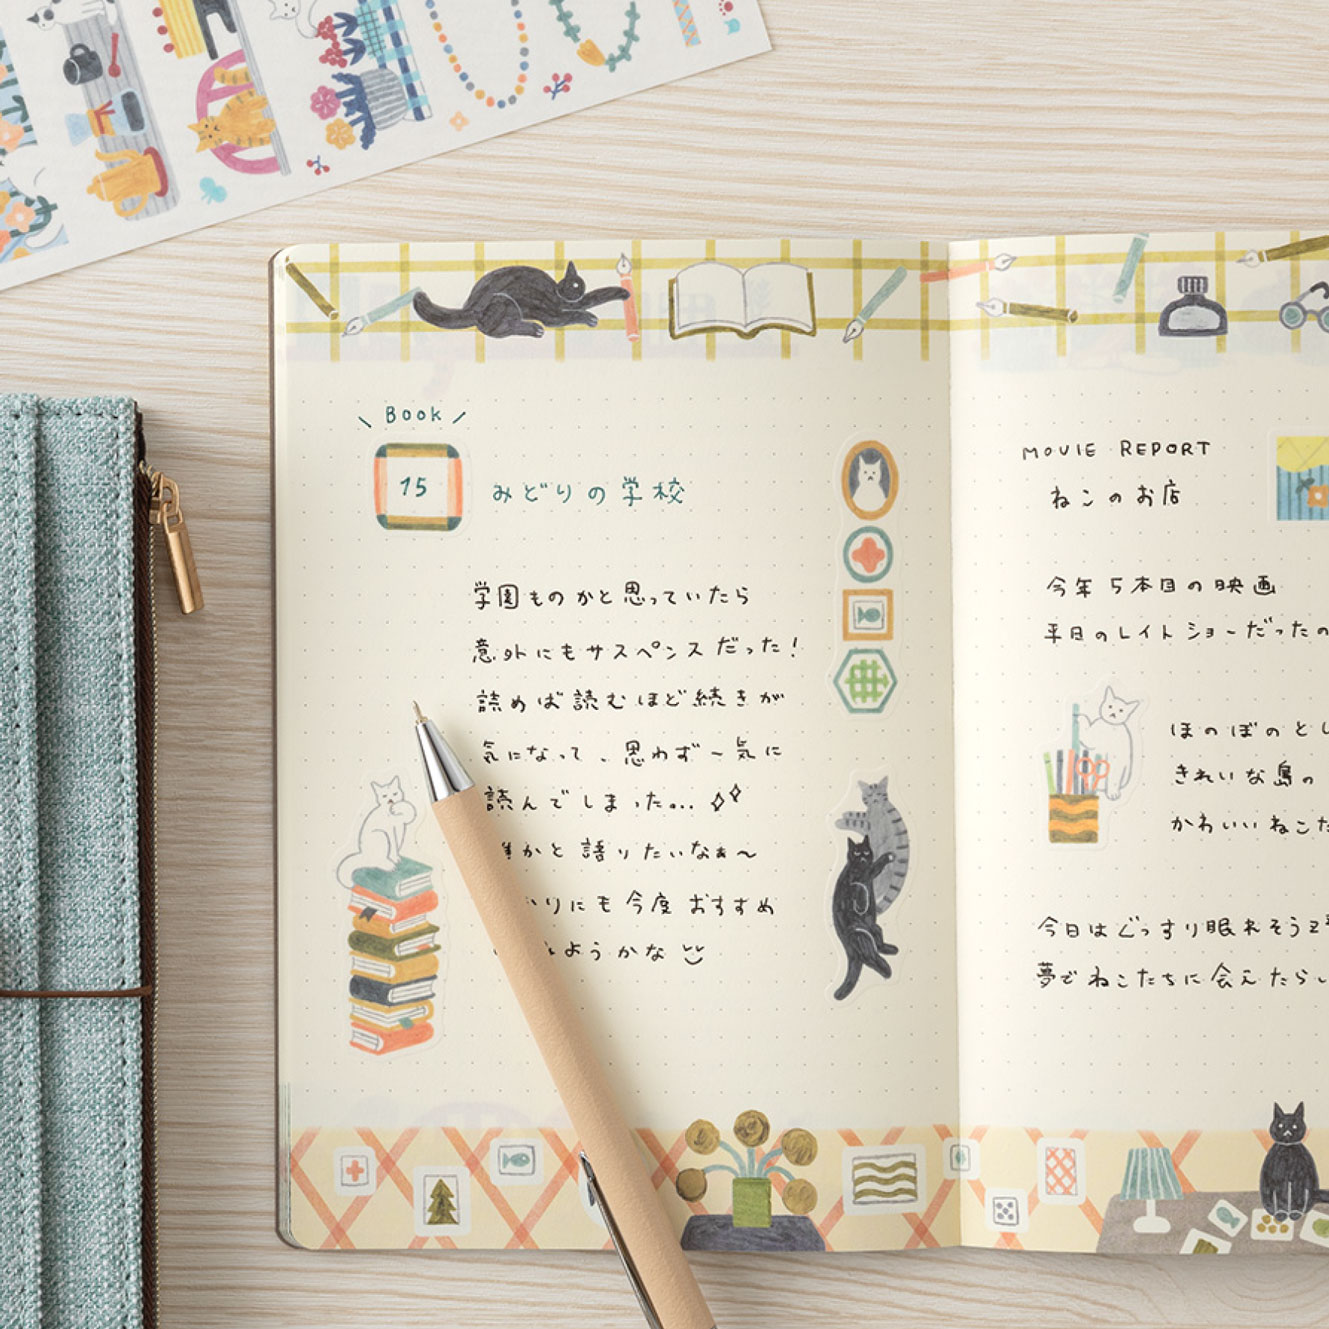 Book
15
みどりの学校
学園ものかと思っていたら
意外にもサスペンスだった!
読めば読むほど続きが
気になって、思わず一気に
読んでしまった...
かと語りたいなぁ〜
りにも今度おすすめ
ようかな
MOVIE REPORT
ねこのお店
今年5本目の映画
平日のレイトショーだったの
ほのぼのとし
きれいな島の
かわいいねこた
今日はぐっすり眠れそう
夢でねこたちに会えたらい